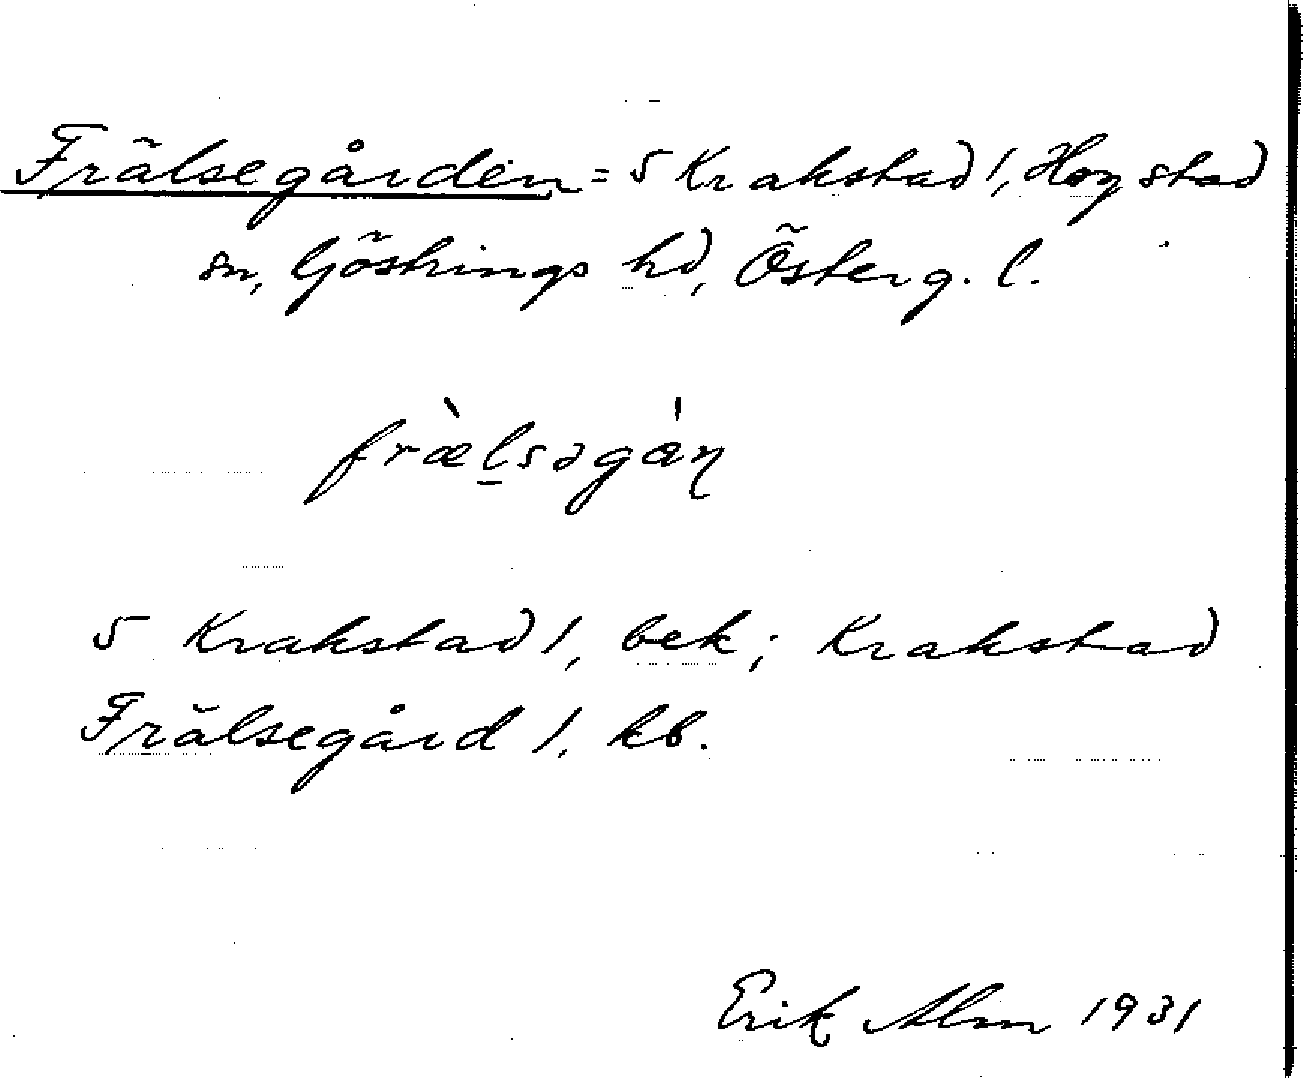 Frälsegården = 5 Krakstad 1, Hogstad
sn, Göstrings hd, Österg. l.
fræ̀l̠səgȧ́ɳ
5 Krakstad 1, bek; Krakstad
Frälsegård 1, kb.
Erik Alm 1931